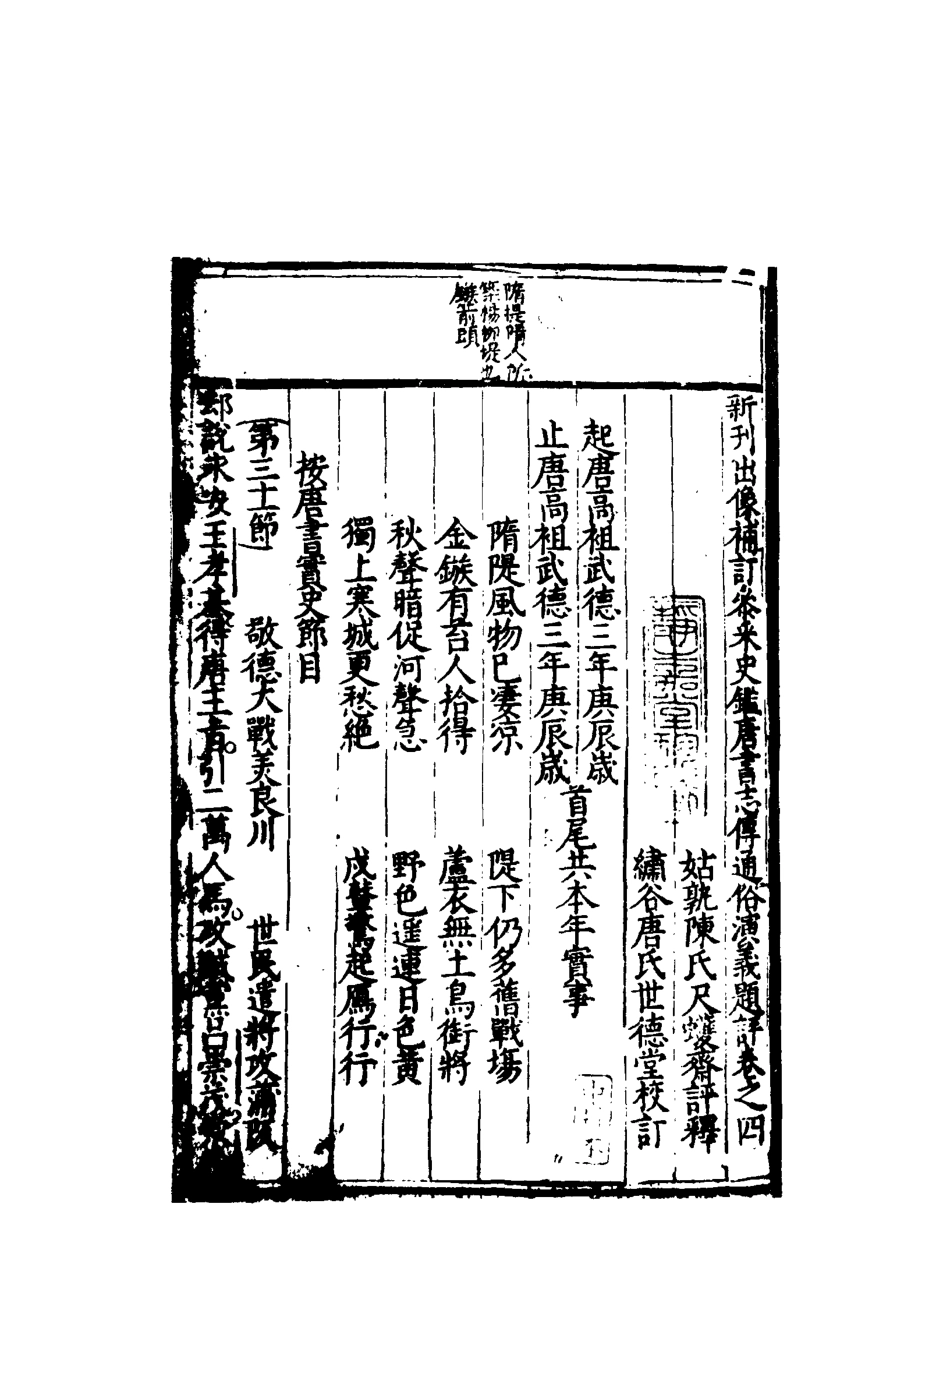 隋堤隋人所
築楊柳堤也
鏃箭頭
新刊出像補訂參采史鑑唐書志傳通俗演義題評卷之四
姑孰陳氏尺蠖齋評釋
繡谷唐氏世德堂校訂
起唐高祖武德三年庚辰歲
止唐高祖武德三年庚辰歲
首尾共本年實事
隋隄風物已凄凉 隄下仍多舊戰塲
金鏃有苔人拾得 蘆衣無土鳥銜將
秋聲暗促河聲急 野色遥連日色黃
獨上寒城更愁絶 戍鼙驚起鴈行行
按唐書實史節目
第三十節 敬德大戰美良川 世民遣將攻蒲阪
却說永安王孝基得唐主旨引二萬人馬攻呂崇茂